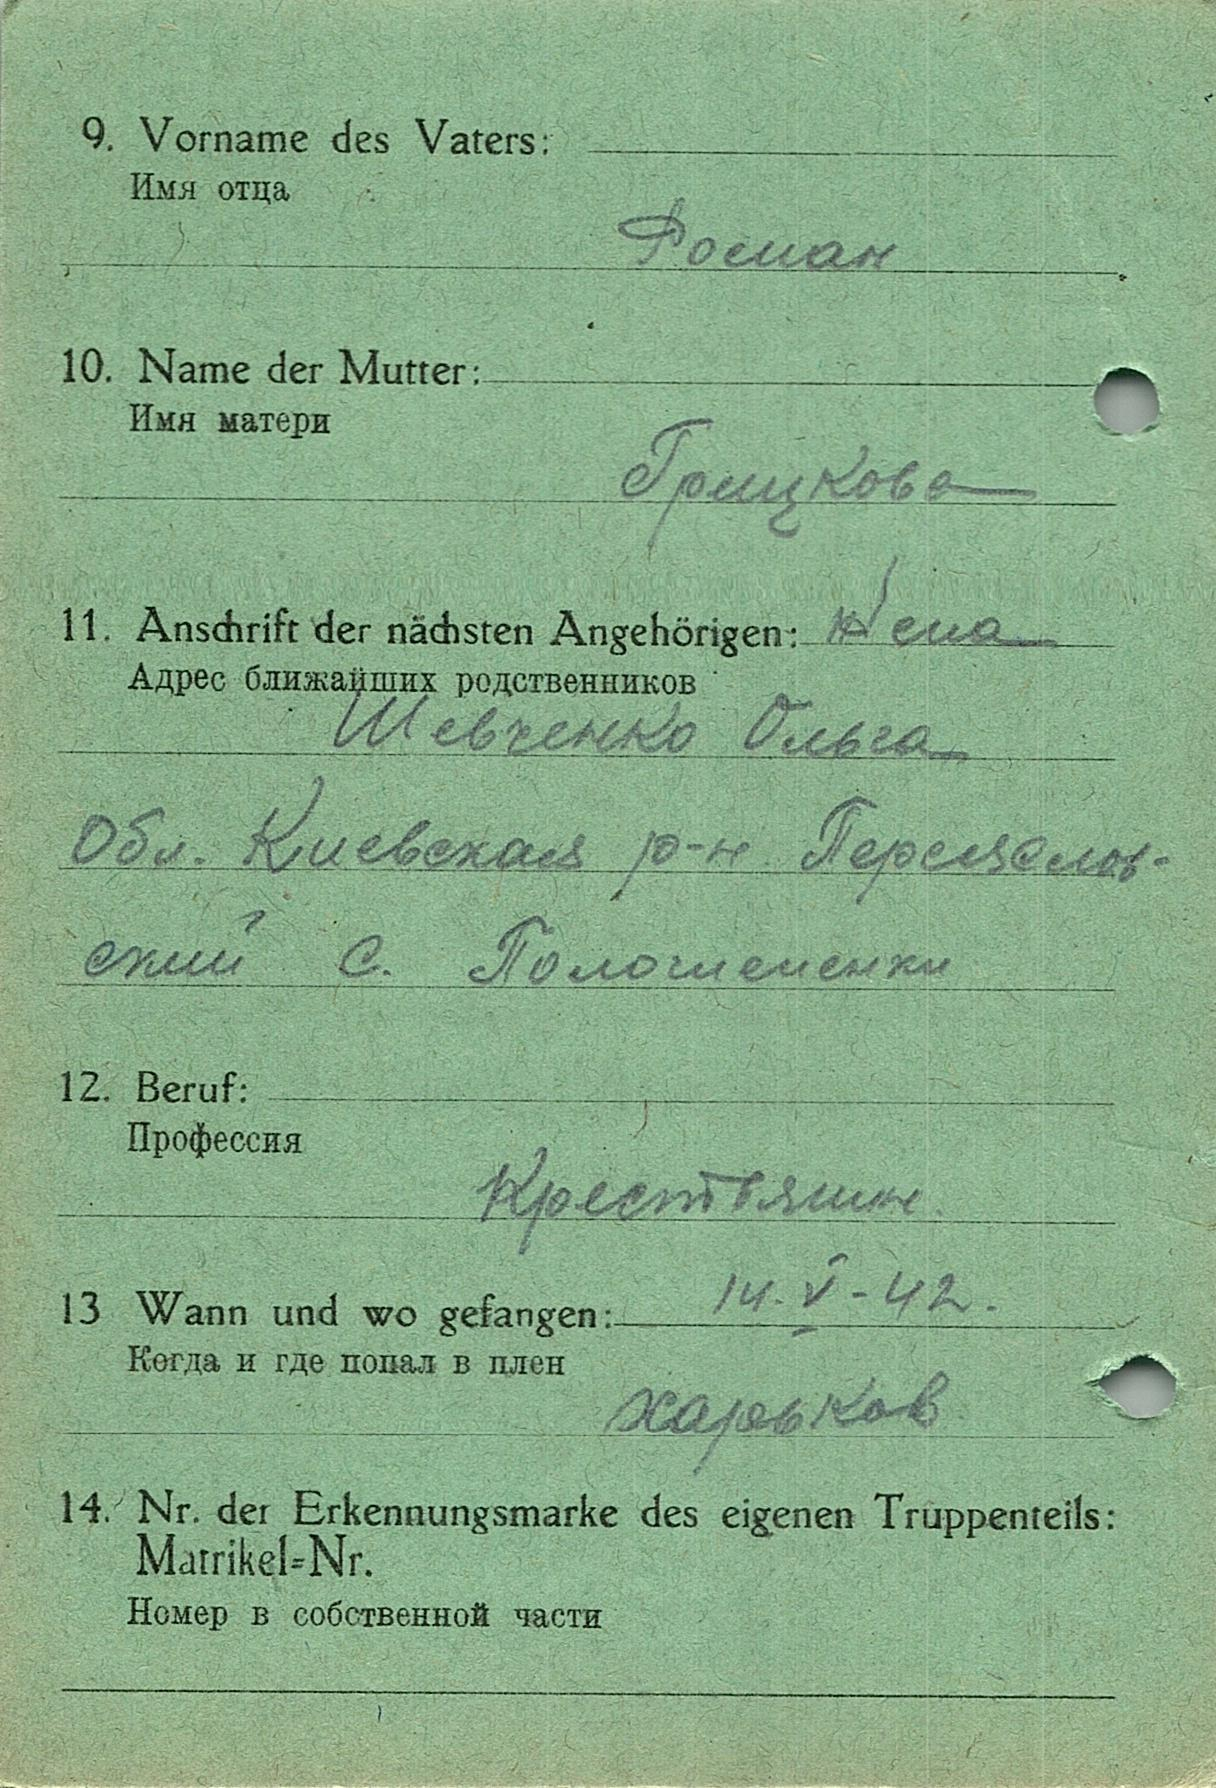 9. Vorname des Vaters:
Имя отца
Роман
10. Name der Mutter:
Имя матери
Грицкова
11. Anschrift der nächsten Angehörigen: жена
Адрес ближайших родственников
Шевченко Ольга
Обл. Киевская р-н Переяслов-
ский с.
12. Beruf:
Профессия
Крестьянин
13 Wann und wo gefangen: 14.V-42.
Когда и где попал в плен
Харьков
14. Nr. der Erkennungsmarke des eigenen Truppenteils:
Matrikel=Nr.
Номер в собственной части